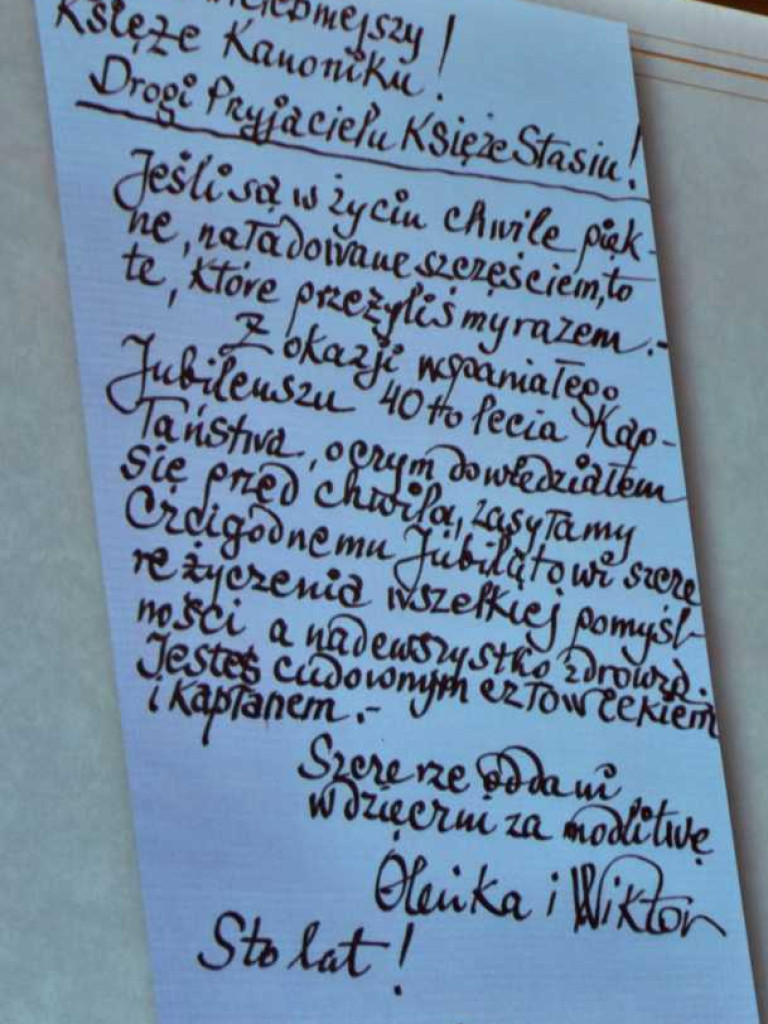 Księże Kanoniku!
Drogi Przyjacielu Księże Stasiu!
Jeśli są w życiu chwile pięk-
ne, naładowane szczęściem, to
te, które przeżyliśmy razem.-
Z okazji wspaniałego
Jubileuszu 40tto lecia Kap-
łaństwa, o czym dowiedziałem
się przed chwilą, zasyłamy
Czcigodnemu Jubilatowi szcze
re życzenia wszelkiej pomyśl-
ności a nadewszystko zdrowia.
Jesteś cudownym człowiekiem
i kapłanem.-
Szczerze oddani
wdzięczni za modlitwę
Oleńka i Wiktor
Sto lat!